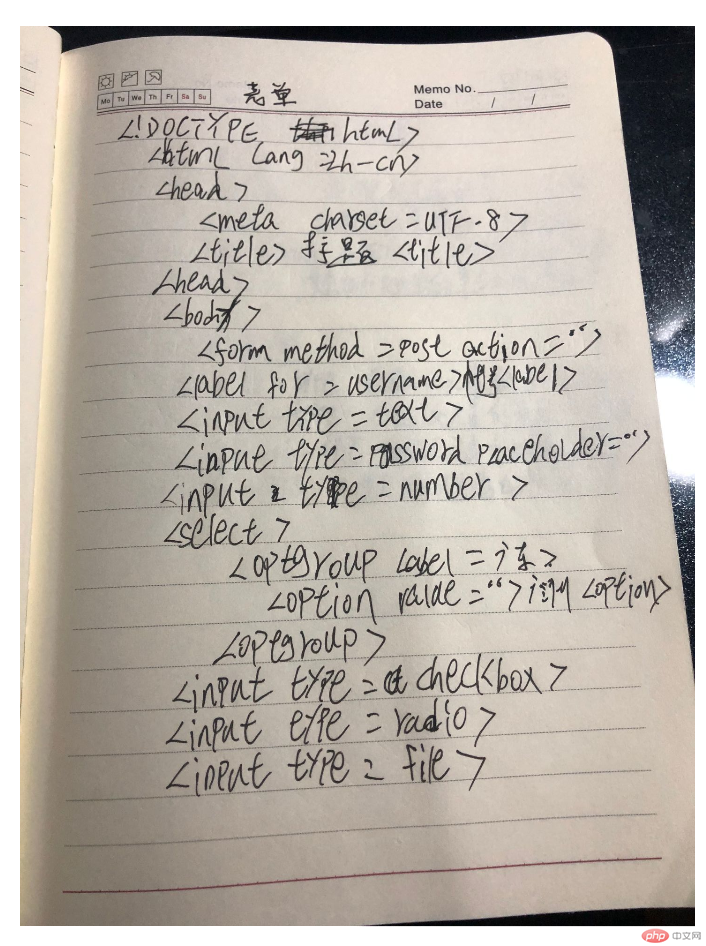 Mo Tu We Th Fr Sa Su
表单
Memo No.
Date / /
<!DOCTYPE html>
<html lang=zh-cn>
<head>
<meta charset=UTF-8>
<title> 标题 <title>
<head>
<body>
<form method=post action="">
<label for=username> <label>
<input type=text>
<input type=password placeholder="">
<input type=number>
<select>
<optgroup label=广东>
<option value=""> <option>
<optgroup>
<input type=checkbox>
<input type=radio>
<input type=file>
php 中文网